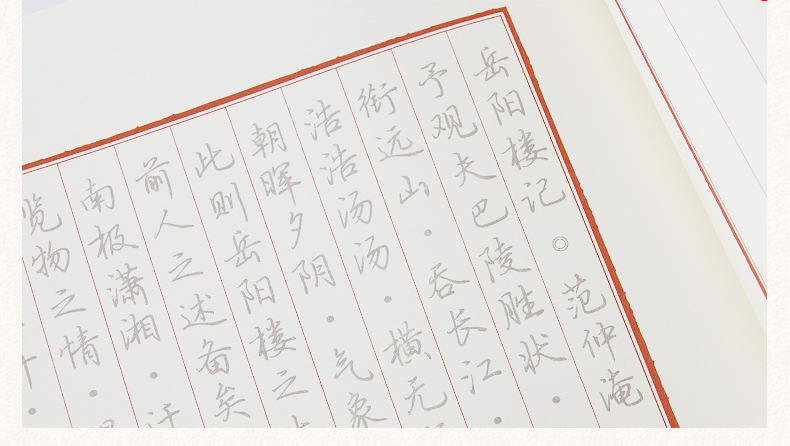 岳阳楼记◎范仲淹
予观夫巴陵胜状·
衔远山·吞长江·
浩浩汤汤·横无
朝晖夕阴·气象
此则岳阳楼之
前人之述备矣
南极潇湘·
览物之情·